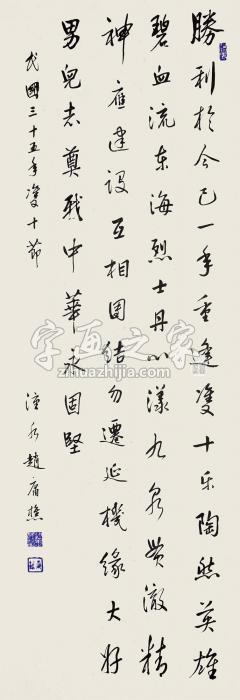 勝利於今已一年重逢雙十樂陶然英雄
碧血流東海烈士丹心漾九泉貫澈精
神應建設互相團結勿遷延機緣大好
男兒志奠我中華永固堅
民國三十五年雙十節
趙庸樵
字画之家
zihuazhijia.com